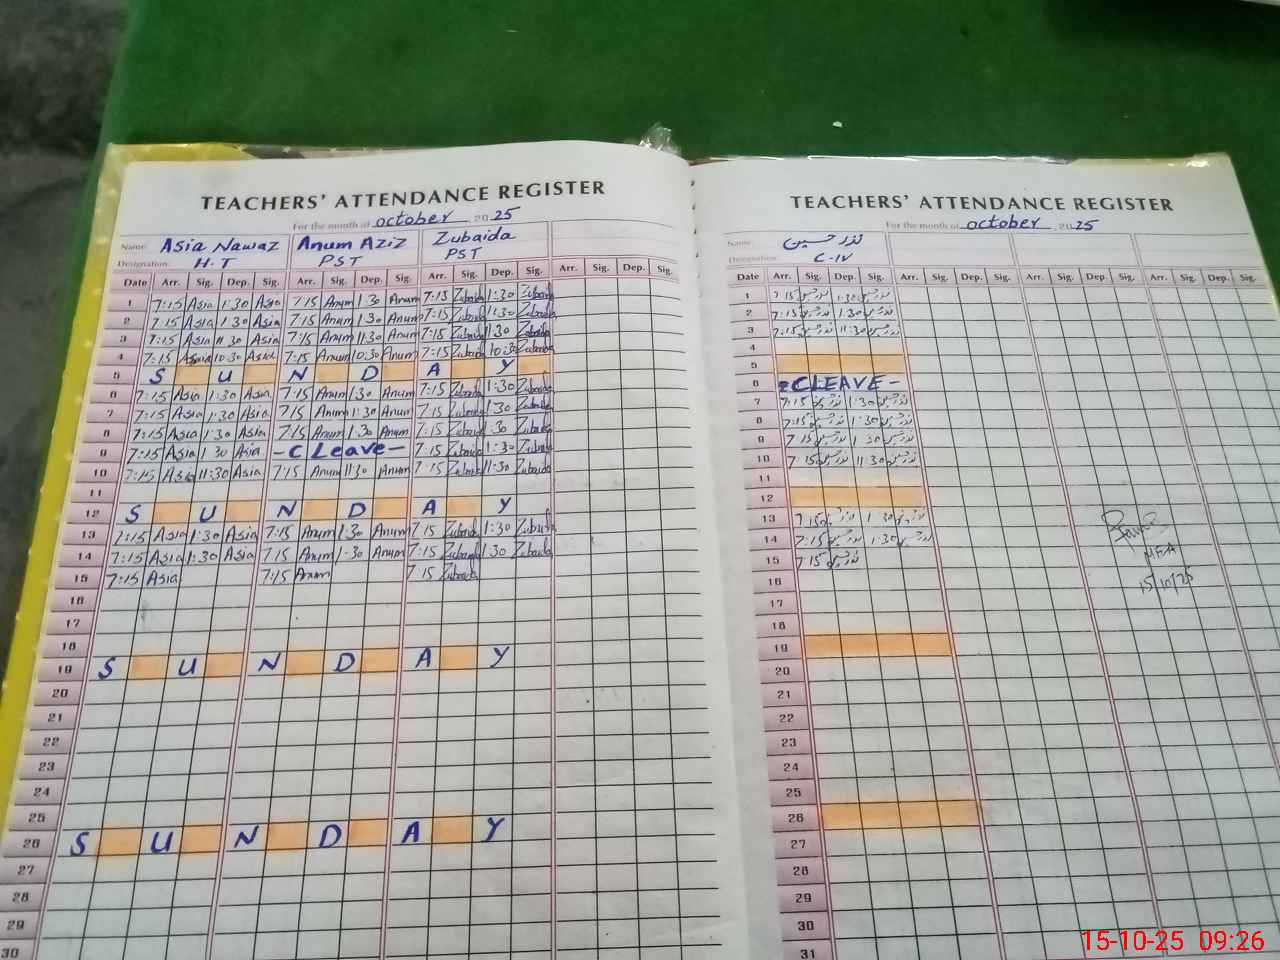 TEACHERS' ATTENDANCE REGISTER
For the month of october 2025
Name: Asia Nawaz Anum Aziz Zubaida
Designation: H.T PST PST
Date Arr. Sig. Dep. Sig. Arr. Sig. Dep. Sig. Arr. Sig. Dep. Sig. Arr. Sig. Dep. Sig.
1 7:15 Asia 1:30 Asia 7:15 Anum 1:30 Anum 7:15 Zubaida 1:30 Zubaida
2 7:15 Asia 1:30 Asia 7:15 Anum 1:30 Anum 7:15 Zubaida 1:30 Zubaida
3 7:15 Asia 11:30 Asia 7:15 Anum 11:30 Anum 7:15 Zubaida 11:30 Zubaida
4 7:15 Asia 10:30 Asia 7:15 Anum 10:30 Anum 7:15 Zubaida 10:30 Zubaida
5 S U N D A Y
6 7:15 Asia 1:30 Asia 7:15 Anum 1:30 Anum 7:15 Zubaida 1:30 Zubaida
7 7:15 Asia 1:30 Asia 7:15 Anum 1:30 Anum 7:15 Zubaida 1:30 Zubaida
8 7:15 Asia 1:30 Asia 7:15 Anum 1:30 Anum 7:15 Zubaida 1:30 Zubaida
9 7:15 Asia 1:30 Asia - C Leave - 7:15 Zubaida 1:30 Zubaida
10 7:15 Asia 11:30 Asia 7:15 Anum 11:30 Anum 7:15 Zubaida 11:30 Zubaida
11
12 S U N D A Y
13 7:15 Asia 1:30 Asia 7:15 Anum 1:30 Anum 7:15 Zubaida 1:30 Zubaida
14 7:15 Asia 1:30 Asia 7:15 Anum 1:30 Anum 7:15 Zubaida 1:30 Zubaida
15 7:15 Asia 7:15 Anum 7:15 Zubaida
16
17
18
19 S U N D A Y
20
21
22
23
24
25
26 S U N D A Y
27
28
29
30
TEACHERS' ATTENDANCE REGISTER
For the month of october 2025
Name: نذر حسین
Designation: C-IV
Date Arr. Sig. Dep. Sig. Arr. Sig. Dep. Sig. Arr. Sig. Dep. Sig. Arr. Sig. Dep. Sig.
1 7:15 1:30
2 7:15 1:30
3 7:15 11:30
4
5
6 CLEAVE -
7 7:15 1:30
8 7:15 1:30
9 7:15 1:30
10 7:15 11:30
11
12
13 7:15 1:30
14 7:15 1:30
15 7:15
16
17
18
19
20
21
22
23
24
25
26
27
28
29
30
31
MEA
15/10/25
15-10-25 09:26